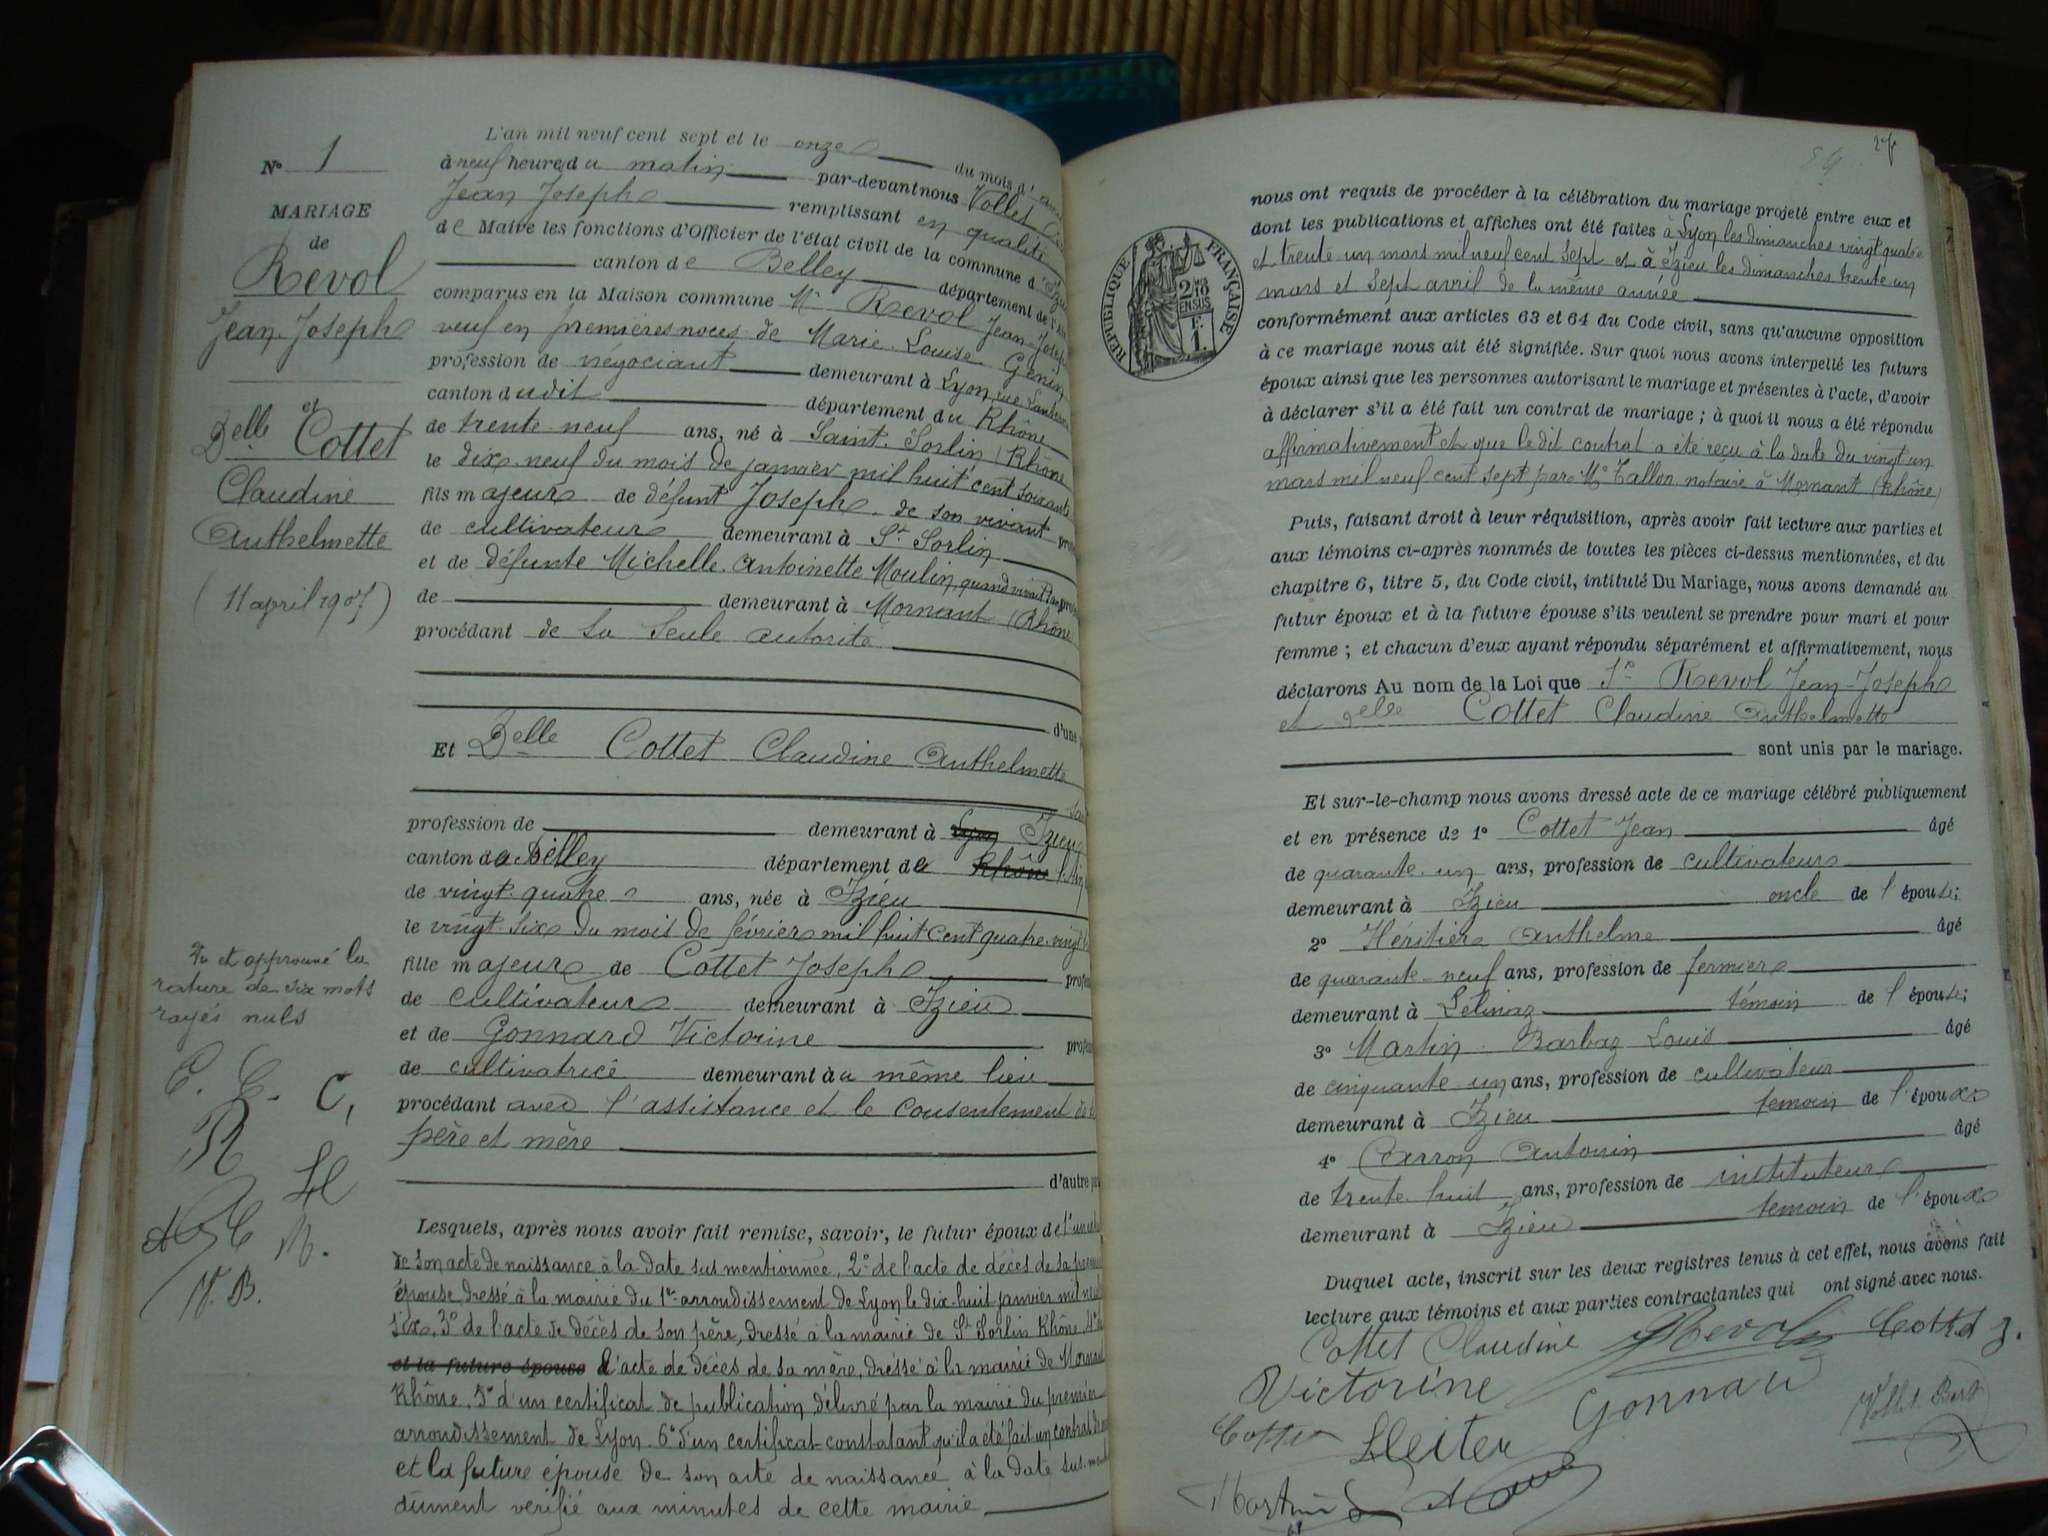 N° 1
MARIAGE
de
Revol
Jean-Joseph
et
Delle Cottet
Claudine
Anthelmette
(11 april 1907)
Vu et approuvé la
rature de six mots
rayés nuls
C. C. C.
R
H
M.
V. B.
L'an mil neuf cent sept et le onze du mois d'
à neuf heures du matin par-devant nous Vollet
Jean Joseph remplissant en qualité
de Maire les fonctions d'Officier de l'état civil de la commune d'
canton de Belley département de l'
comparus en la Maison commune Mr Revol Jean-Joseph
veuf en premières noces de Marie-Louise Genin
profession de négociant demeurant à Lyon, rue
canton dudit département du Rhône
de trente neuf ans, né à Saint-Sorlin (Rhône
le dix-neuf du mois de janvier mil huit cent soixante
fils majeur de défunt Joseph, de son vivant
de cultivateur demeurant à St Sorlin
et de défunte Michelle-Antoinette Moulin, quand vivait
de demeurant à Mornant (Rhône
procédant de sa seule autorité
d'une
Et Delle Cottet Claudine Anthelmette
profession de demeurant à Lyon Izieu
canton de Belley département de Rhône l'Ain
de vingt-quatre ans, née à Izieu
le vingt-six du mois de février mil huit cent quatre-vingt
fille majeure de Cottet Joseph
de cultivateur demeurant à Izieu
et de Gonnard Victorine
de cultivatrice demeurant au même lieu
procédant avec l'assistance et le consentement de
père et mère
d'autre
Lesquels, après nous avoir fait remise, savoir, le futur époux de
de son acte de naissance à la date sus mentionnée, 2° de l'acte de décès de sa
épouse, dressé à la mairie du 1er arrondissement de Lyon le dix-huit janvier mil
six, 3° de l'acte de décès de son père, dressé à la mairie de St Sorlin Rhône, 4°
et la future épouse l'acte de décès de sa mère, dressé à la mairie de
Rhône, 5° d'un certificat de publication délivré par la mairie du premier
arrondissement de Lyon. 6° d'un certificat constatant qu'il a été fait un contrat
et la future épouse de son acte de naissance à la date
dûment vérifié aux minutes de cette mairie
RÉPUBLIQUE FRANÇAISE
nous ont requis de procéder à la célébration du mariage projeté entre eux et
dont les publications et affiches ont été faites à Lyon les dimanches vingt quatre
et trente un mars mil neuf cent sept et à Izieu les dimanches trente un
mars et sept avril de la même année
conformément aux articles 63 et 64 du Code civil, sans qu'aucune opposition
à ce mariage nous ait été signifiée. Sur quoi nous avons interpellé les futurs
époux ainsi que les personnes autorisant le mariage et présentes à l'acte, d'avoir
à déclarer s'il a été fait un contrat de mariage ; à quoi il nous a été répondu
affirmativement et que le dit contrat a été reçu à la date du vingt un
mars mil neuf cent sept par Me Tallon, notaire à Mornant (Rhône)
Puis, faisant droit à leur réquisition, après avoir fait lecture aux parties et
aux témoins ci-après nommés de toutes les pièces ci-dessus mentionnées, et du
chapitre 6, titre 5, du Code civil, intitulé Du Mariage, nous avons demandé au
futur époux et à la future épouse s'ils veulent se prendre pour mari et pour
femme ; et chacun d'eux ayant répondu séparément et affirmativement, nous
déclarons Au nom de la Loi que Sr Revol Jean-Joseph
et Delle Cottet Claudine Anthelmette
sont unis par le mariage.
Et sur-le-champ nous avons dressé acte de ce mariage célébré publiquement
et en présence de 1° Cottet Jean âgé
de quarante-un ans, profession de cultivateur
demeurant à Izieu oncle de l'épouse;
2° Héritier Anthelme âgé
de quarante-neuf ans, profession de fermier
demeurant à Lélinaz témoin de l'épouse;
3° Martin-Barbaz Louis âgé
de cinquante-un ans, profession de cultivateur
demeurant à Izieu temoin de l'époux
4° Carron Antonin âgé
de trente-huit ans, profession de instituteur
demeurant à Izieu temoin de l'époux
Duquel acte, inscrit sur les deux registres tenus à cet effet, nous avons fait
lecture aux témoins et aux parties contractantes qui ont signé avec nous.
Cottet Claudine Revol Cottet J.
Victorine Gonnard